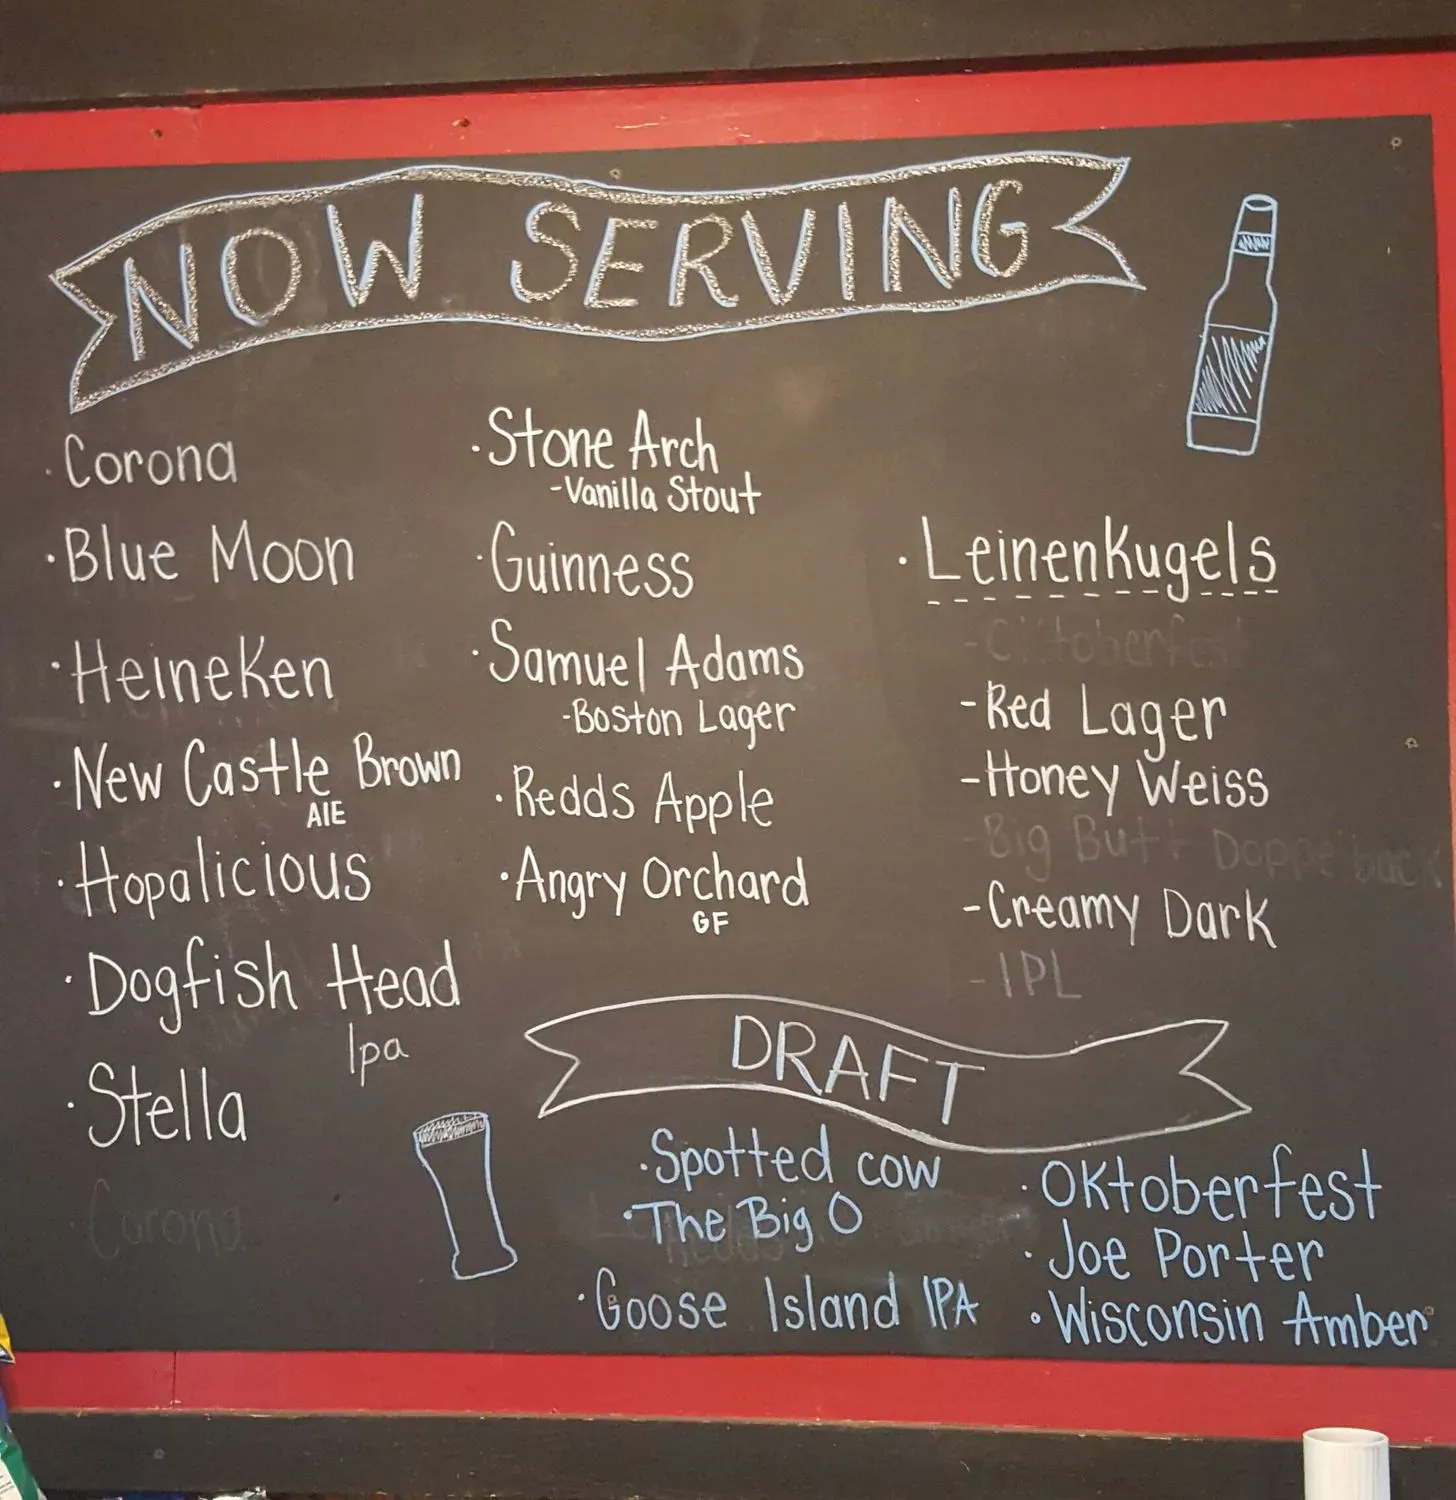 NOW SERVING
· Corona
· Blue Moon
· Heineken
· New Castle Brown
AlE
· Hopalicious
· Dogfish Head
Ipa
· Stella
· Corona
· Stone Arch
-Vanilla Stout
· Guinness
· Samuel Adams
-Boston Lager
· Redds Apple
· Angry Orchard
GF
· Leinenkugels
- Red Lager
- Honey Weiss
- Big Butt Doppelbock
- Creamy Dark
- IPL
DRAFT
· Spotted cow
· The Big O
· Goose Island IPA
· Oktoberfest
· Joe Porter
· Wisconsin Amber